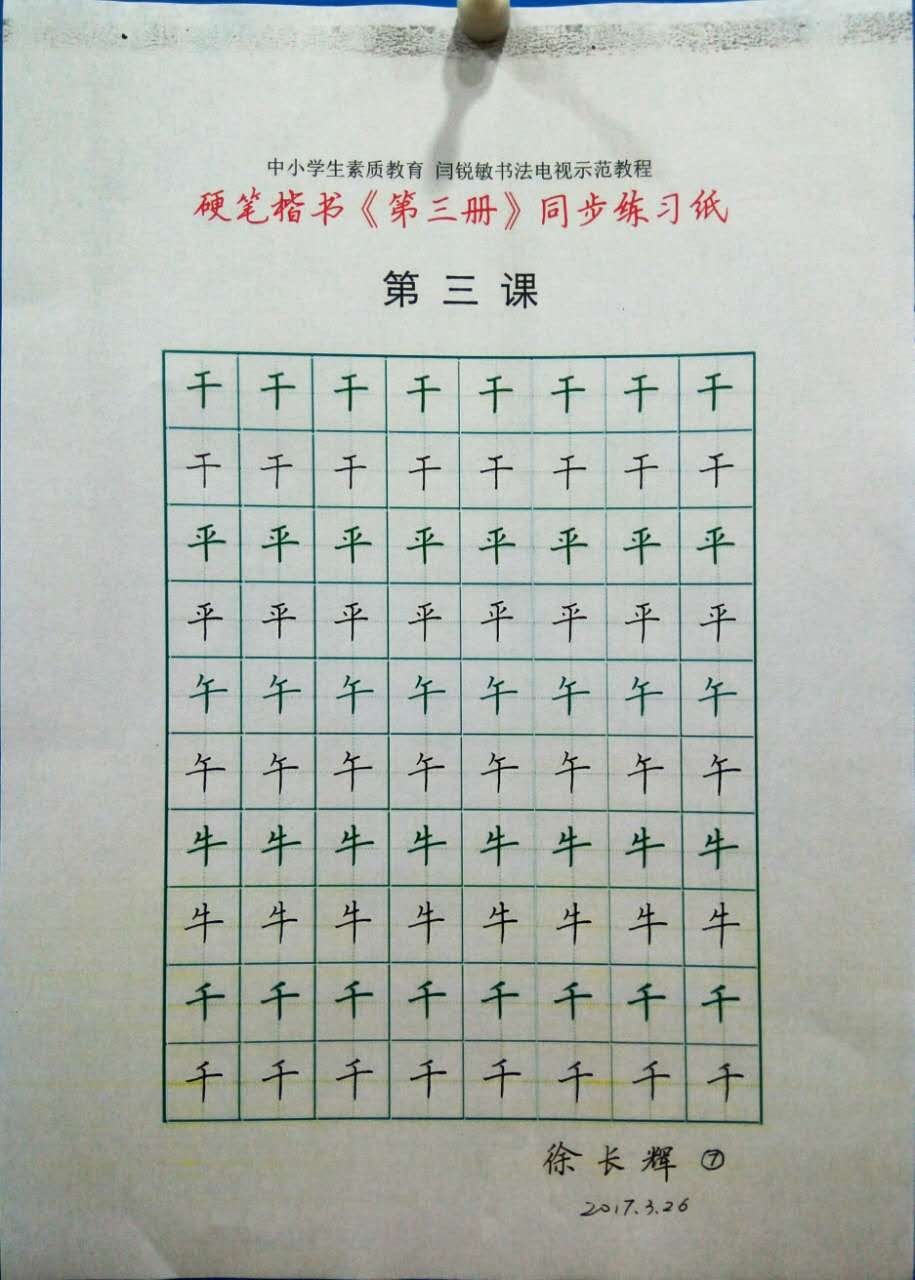 中小学生素质教育 闫锐敏书法电视示范教程
硬笔楷书《第三册》同步练习纸
第三课
干干干干干干干干
干干干干干干干干
平平平平平平平平
平平平平平平平平
午午午午午午午午
午午午午午午午午
牛牛牛牛牛牛牛牛
牛牛牛牛牛牛牛牛
千千千千千千千千
千千千千千千千千
徐长辉 ⑦
2017.3.26